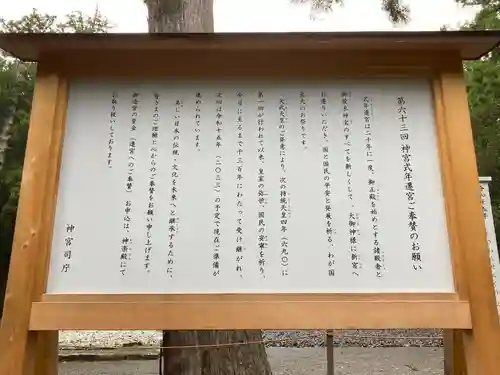 第六十三回 神宮式年遷宮ご奉賛のお願い
式年遷宮は二十年に一度、御正殿を始めとする諸殿舎と
御装束神宝のすべてを新しくして、大御神様に新宮へ
お遷りいただき、国と国民の平安と発展を祈る、わが国
最大のお祭りです。
天武天皇のご発意により、次の持統天皇四年（六九〇）に
第一回が行われて以来、皇家の弥栄、国民の安寧を祈り、
今日に至るまで千三百年にわたって受け継がれ、
次回は令和十五年（二〇三三）の予定で現在ご準備が
進められています。
美しい日本の伝統・文化を未来へと継承するために、
皆さまのご理解と心からのご奉賛をお願い申し上げます。
御造営の資金（遷宮へのご奉賛）お申込は、神楽殿にて
お取り扱いしております。
神宮司庁